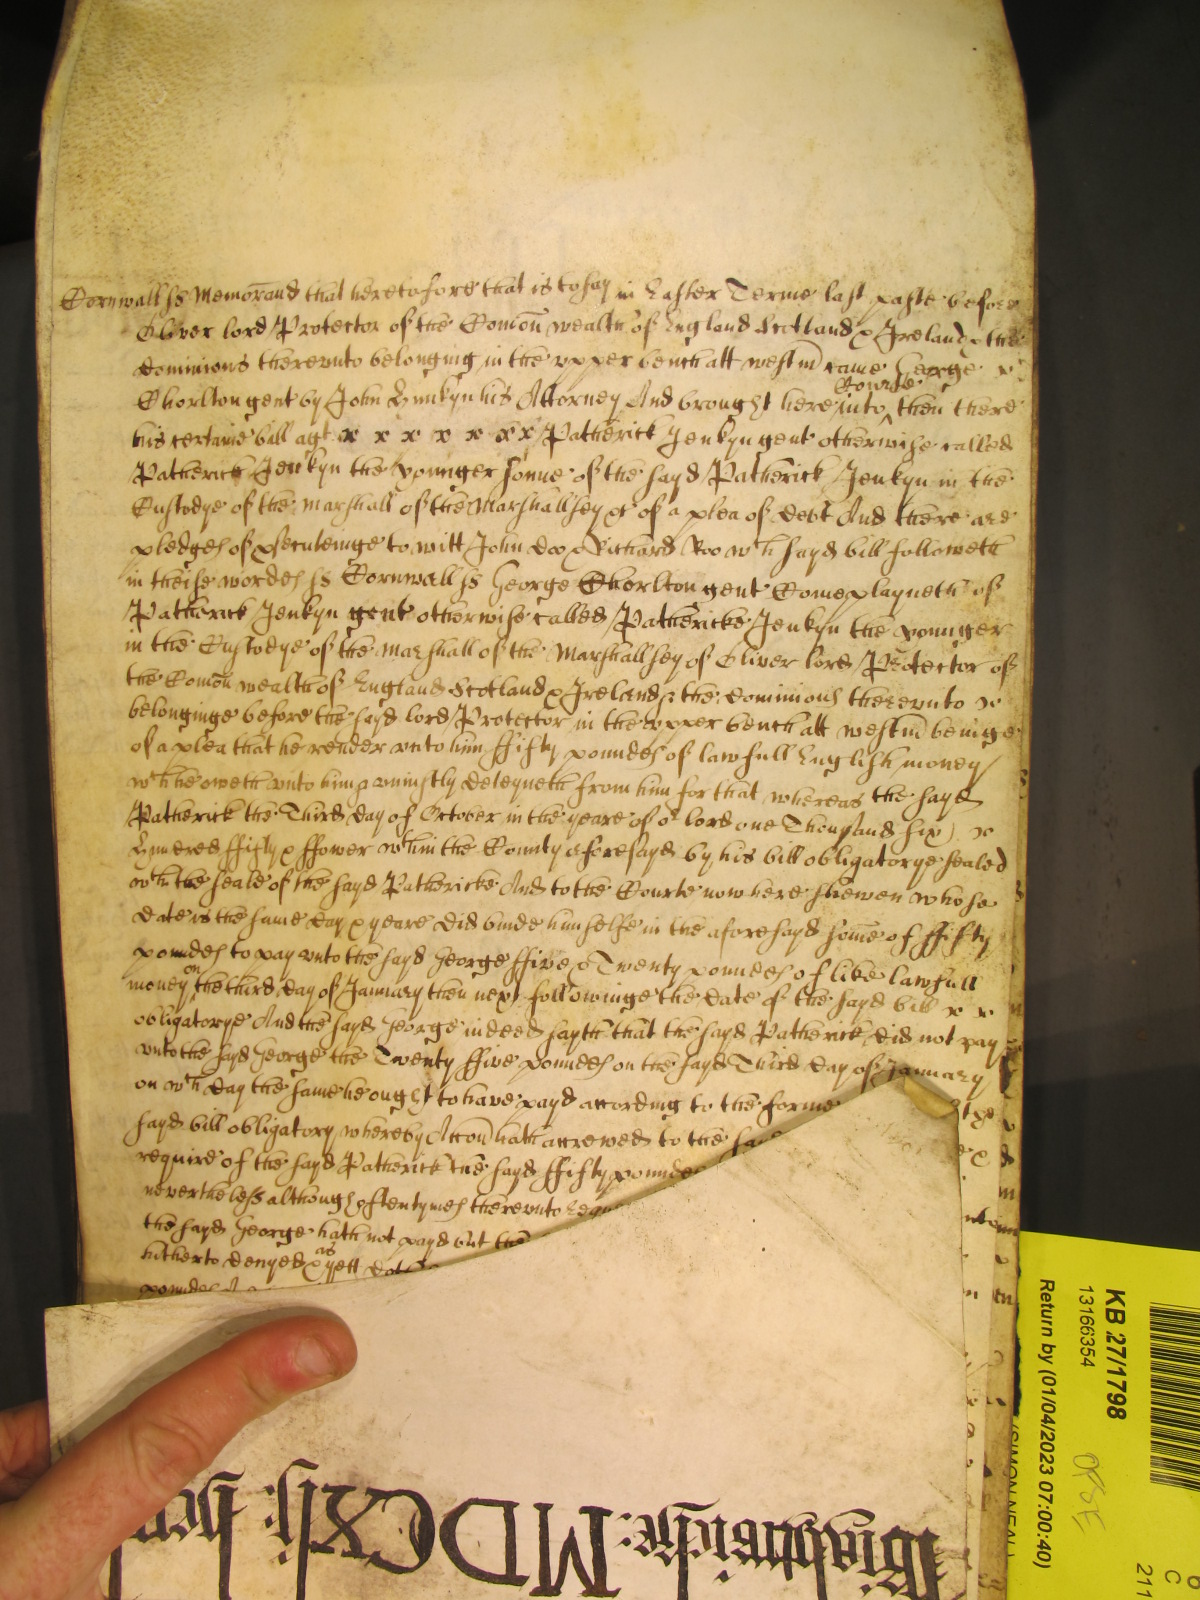 Cornwall ss Memorand that heretofore that is to say in Easter Terme last paste before
Oliver lord Protector of the Comon wealth of England Scotland & Ireland & the
dominions thereunto belonging in the upper bench att westm came George
Chorlton gent by John his Attorney And brought here into Courte then there
his certaine bill agt x x x x x x x Patherick Jenkyn gent otherwise called
Patherick Jenkyn the younger sonne of the sayd Patherick Jenkyn in the
Custodye of the Marshall of the Marshallsey &c of a plea of debt And there are
pledges of psecuteinge to witt John doo & Richard Roo wch sayd bill followeth
in theise wordes ss Cornwall ss George Chorlton gent Complayneth of
Patherick Jenkyn gent otherwise called Pathericke Jenkyn the younger
in the Custodye of the Marshall of the Marshallsey of Oliver lord Protector of
the Comon wealth of England Scotland & Ireland & the dominions thereunto
belonginge before the sayd lord Protector in the upper bench att westm beinge
of a plea that he render unto him ffifty poundes of lawfull English money
wch he oweth unto him & uniustly deteyneth from him for that whereas the sayd
Patherick the Third day of October in the yeare of or lord one Thousand six
hundred ffifty & ffower wthin the County aforesayd by his bill obligatorye sealed
wth the seale of the sayd Pathericke And to the Courte now here shewen whose
date is the same day & yeare did binde himselfe in the aforesayd some of ffifty
poundes to pay unto the sayd George ffive & Twenty poundes of like lawfull
money on the third day of January then next followinge the date of the sayd bill
obligatorye And the sayd George indeed sayth that the sayd Patherick did not pay
unto the sayd George the Twenty ffive poundes on the sayd Third day of January
on wch day the same he ought to have payd according to the forme
sayd bill obligatory whereby Accon hath accrewed to the sayd
require of the sayd Patherick the sayd ffifty poundes
neverthelesse although oftentymes thereunto
the sayd George hath not payd but the
hitherto denyed & as yett doth
poundes
MDCXlj:
KB 27/1798
13166354
Return by (01/04/2023 07:00:40)
(SIMON NEAL)
C
211